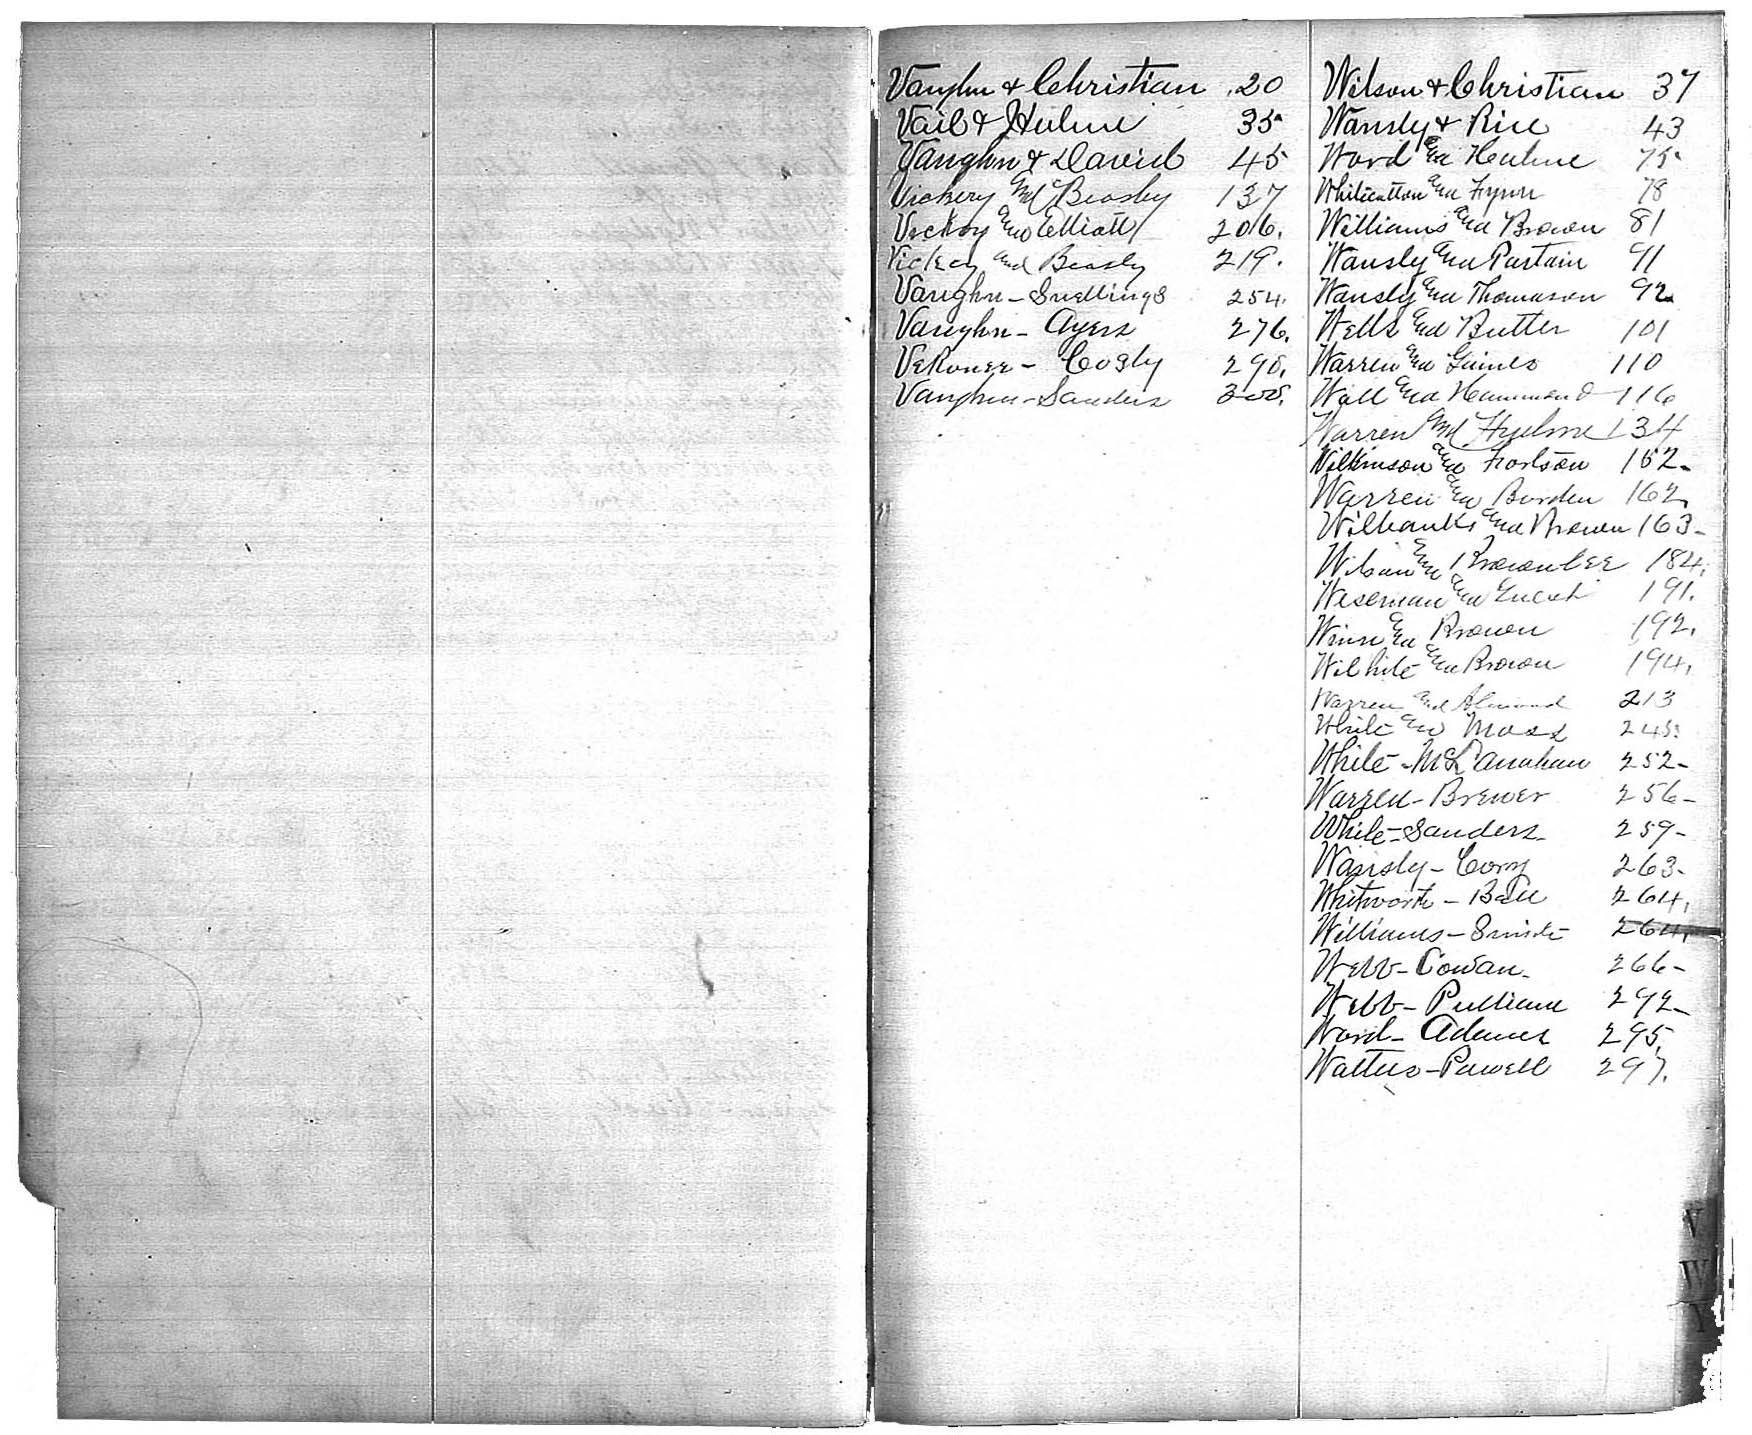 Vaughn & Christian 20
Vail & Hulme 35
Vaughn & David 45
Vickery and Beasly 137
Vickry and Elliott 206.
Vickey and Beasly 219.
Vaughn - Snellings 254.
Vaughn - Ayers 276.
Veronee - Cogly 290.
Vaughn - Sanders 300.
Wilson & Christian 37
Wansly & Rice 43
Ward and Heulme 75
and 78
Williams and Brown 81
Wansly and Partain 91
Wansly and Thomason 92
Wells and Butler 101
Warren and Gaines 110
Wall and Hammond 116
Warren and 134
Wilkinson and Fortson 152-
Warren and Borden 162
Wilbanks and Brown 163-
Wilson and Brownlee 184.
Weseman and 191.
Winn and Brown 192.
Wilhite and Brown 194.
Warren and Almond 213
White and Moss 245.
White - McLanahan 252-
Warren - Brewer 256-
White - Sanders 259-
Wansly - Cory 263-
Whitworth - Ball 264.
Williams - 264.
Webb - Cowan 266-
Webb - Pulliam 292-
Ward - Adams 295.
Watters - Powell 297.
V
W
Y